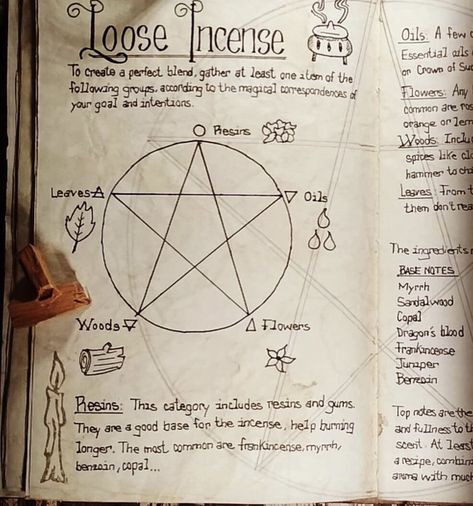 Loose Incense
To create a perfect blend, gather at least one item of the
following groups, according to the magical correspondences of
your goal and intentions.
Resins
Leaves
Oils
Woods
Flowers
Resins: This category includes resins and gums.
They are a good base for the incense, help burning
longer. The most common are frankincense, myrrh,
benzoin, copal...
Oils: A few
Essential oils
or Crown of
Flowers: Any
common are
orange or
Woods:
spices like
hammer to
Leaves: From
them don't
The ingredients
BASE NOTES
Myrrh
Sandalwood
Copal
Dragon's blood
Frankincense
Juniper
Benzoin
Top notes are the
and fullness to
scent. At
a recipe,
aroma with much